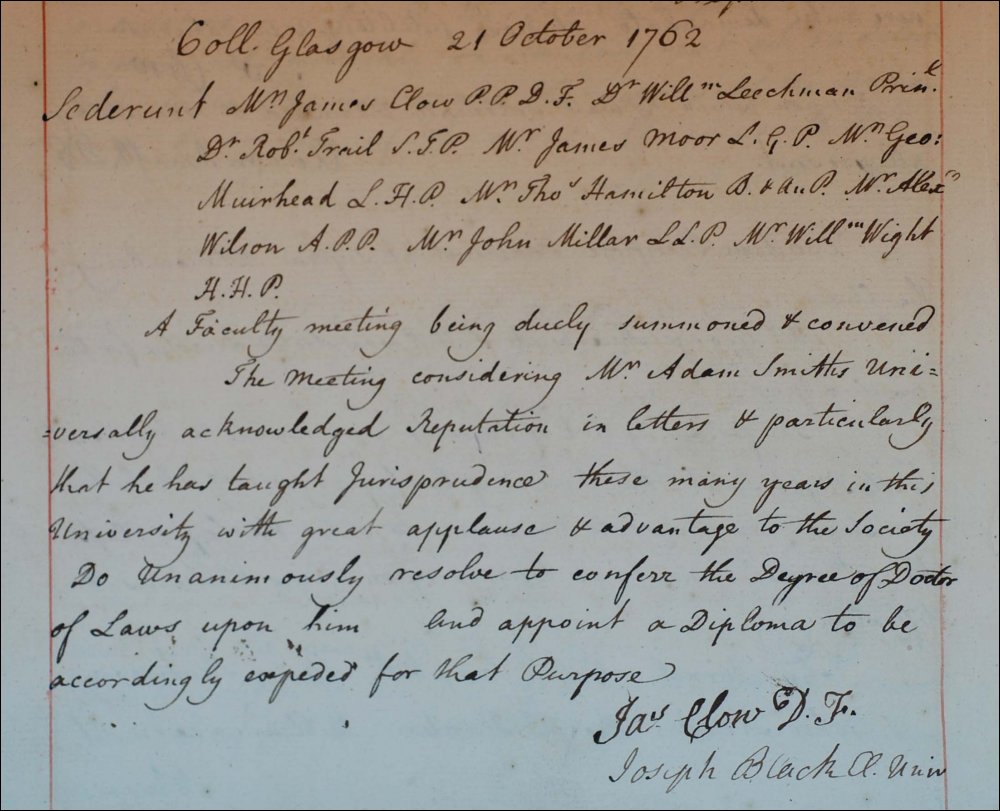 Coll. Glasgow 21 October 1762
Sederunt Mr. James Clow P.P. D.F. Dr Willm Leechman Prinl.
Dr Robt. Trail S.T.P. Mr James Moor L.G.P. Mr Geo:
Muirhead L.H.P. Mr. Thos Hamilton B. & An P. Mr. Alexr
Wilson A.P.P. Mr John Millar L L.P. Mr Willm Wight
H.H.P.
A Faculty meeting being duely summoned & convened
The meeting considering Mr Adam Smiths Uni=
=versally acknowledged Reputation in letters & particularly
that he has taught Jurisprudence these many years in this
University with great applause & advantage to the Society
Do Unanimously resolve to conferr the Degree of Doctor
of Laws upon him And appoint a Diploma to be
accordingly expeded for that Purpose
Jas Clow D.F.
Joseph Black Cl. Univ